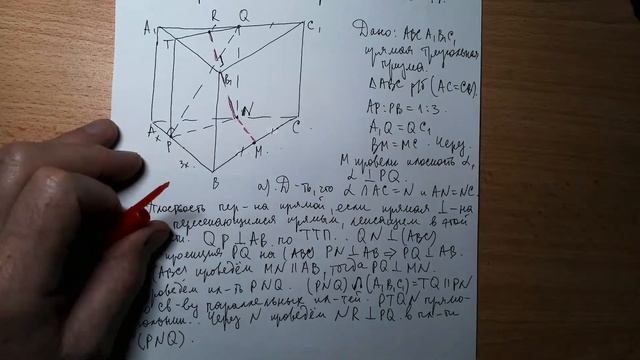 R Q
A₁ C₁
T
B₁
N
A C
x P
3x M
B
Дано: ABC A₁B₁C₁
прямая треугольная
призма.
△ABC р/б (AC=CB).
AP:PB = 1:3.
A₁Q = QC₁
BM = MC. Через
M провели плоскость α,
α ⊥ PQ.
а). Д-ть, что
α ∩ AC = N и AN=NC.
Плоскость пер-на прямой, если прямая ⊥-на
пересекающимся прямым, лежащим в этой
QP ⊥ AB по ТТП. QN ⊥ (ABC)
PQ на (ABC) PN ⊥ AB ⇒ PQ ⊥ AB.
проведём MN ∥ AB, тогда PQ ⊥ MN.
пл-ть PNQ. (PNQ) ∩ (A₁B₁C₁) = TQ ∥ PN
св-ву параллельных пл-тей. PTQN прямо-
Через N проведём NR ⊥ PQ в пл-ти
(PNQ).